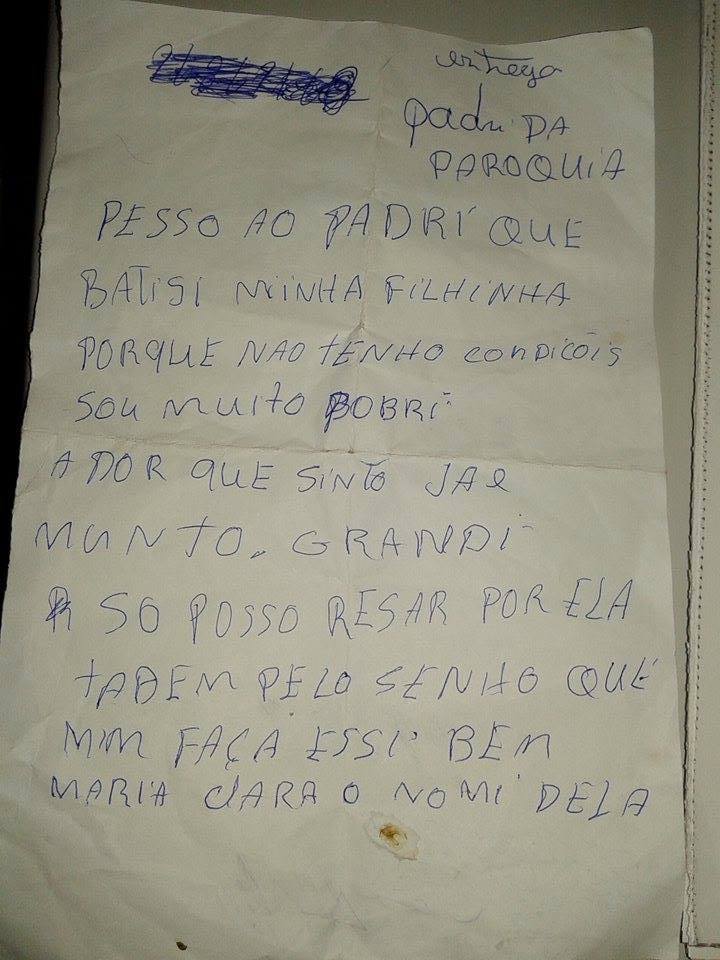 entrega
padri DA
PAROQUIA
PESSO AO PADRI QUE
BATISI MINHA FILHINHA
PORQUE NAO TENHO CONDICÕIS
SOU MUITO POBRI
A DOR QUE SINTO JA E
MUNTO. GRANDI
SO POSSO RESAR POR ELA
TADEM PELO SENHO QUE
MIM FAÇA ESSI BEM
MARIA CLARA O NOMI DELA